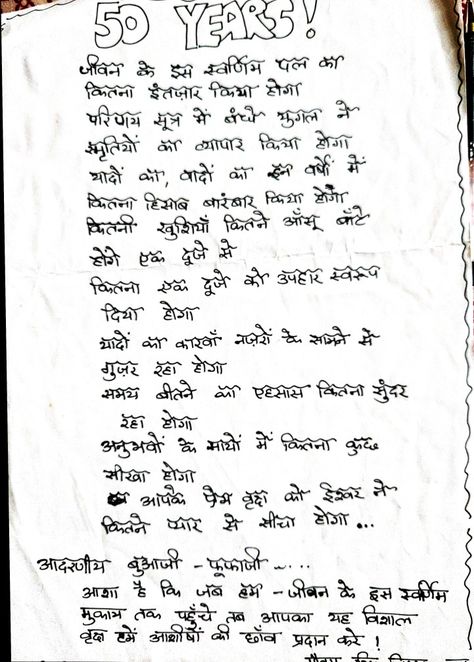 50 YEARS!
जीवन के इस स्वर्णिम पल का
कितना इंतज़ार किया होगा
परिणय सूत्र में बंधे युगल ने
स्मृतियों का व्यापार किया होगा
यादों का, वादों का इन वर्षों में
कितना हिसाब बारंबार किया होगा
कितनी खुशियाँ कितने आँसू बाँटे
होंगे एक दूजे से
कितना एक दूजे को उपहार स्वरूप
दिया होगा
यादों का कारवाँ नज़रों के सामने से
गुज़र रहा होगा
समय बीतने का एहसास कितना सुंदर
रहा होगा
अनुभवों के सायों में कितना कुछ
सीखा होगा
आपके प्रेम वृक्ष को ईश्वर ने
कितने प्यार से सींचा होगा ...
आदरणीय बुआजी - फूफाजी .....
आशा है कि जब हम - जीवन के इस स्वर्णिम
मुकाम तक पहुँचे तब आपका यह विशाल
वृक्ष हमें आशीषों की छाँव प्रदान करे !